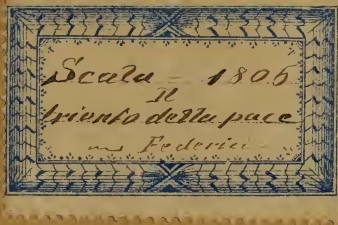 Scala = 1806
Il
trionfo della pace
Federici